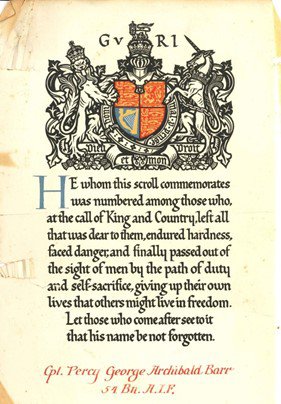 G V R I
Dieu et mon Droit
HE whom this scroll commemorates
was numbered among those who,
at the call of King and Country, left all
that was dear to them, endured hardness,
faced danger, and finally passed out of
the sight of men by the path of duty
and self-sacrifice, giving up their own
lives that others might live in freedom.
Let those who come after see to it
that his name be not forgotten.
Cpl. Percy George Archibald Barr
54 Bn. A.I.F.